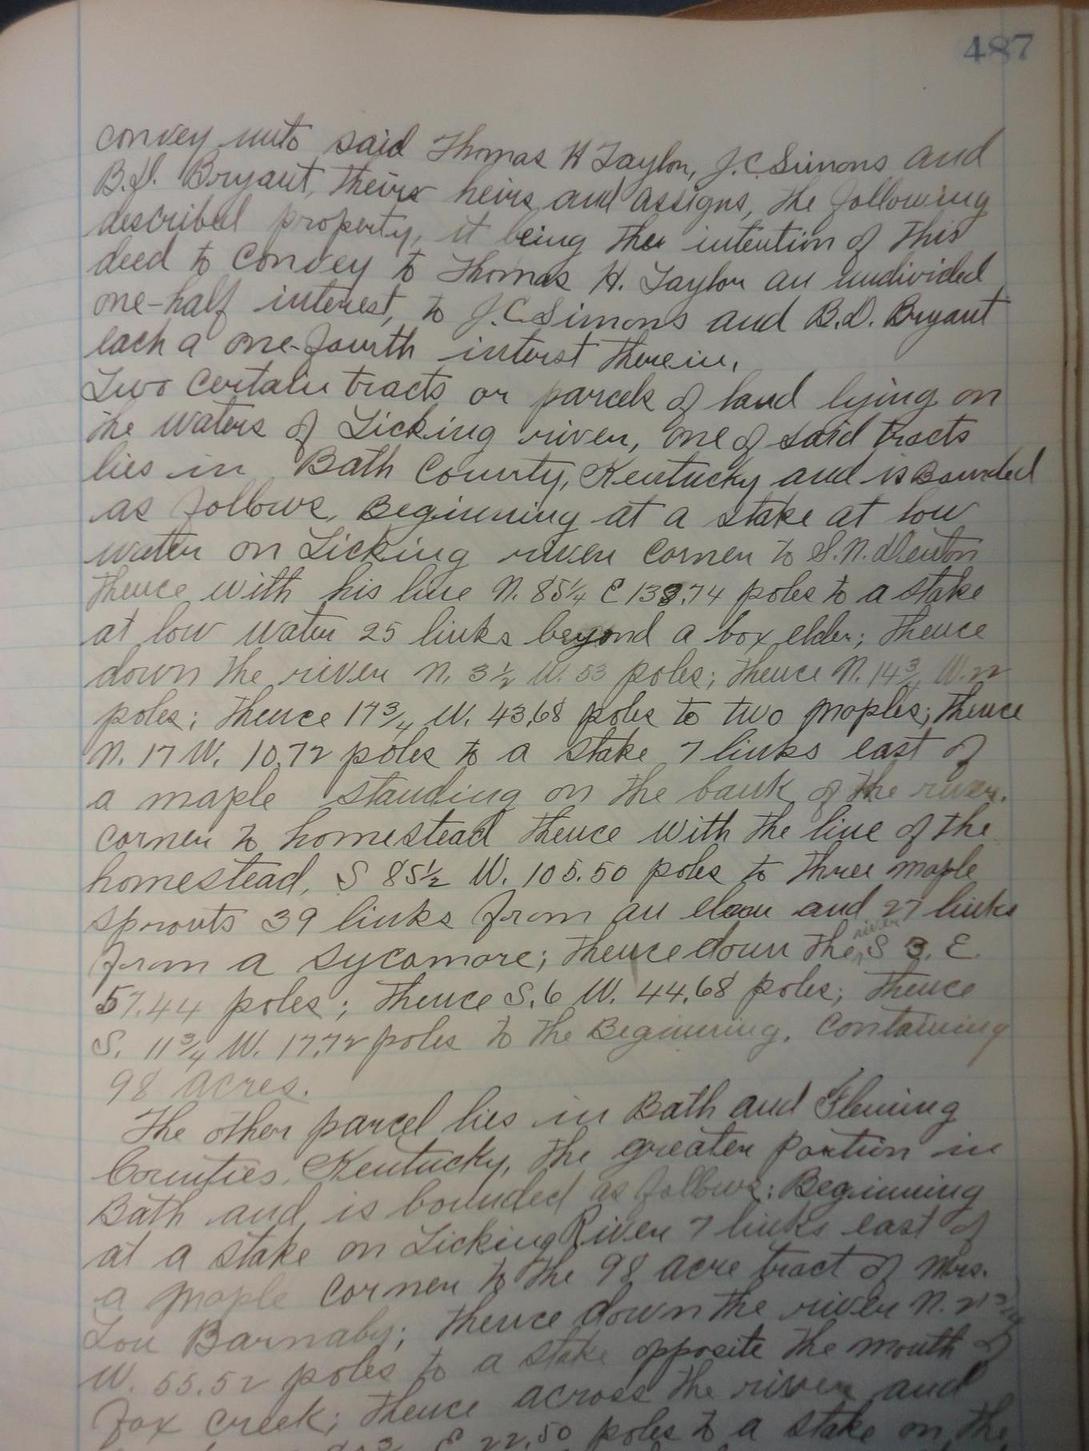 487
convey unto said Thomas H Taylor, J.C. Simons and
B.D. Bryant, theirs heirs and assigns, the following
described property, it being the intention of this
deed to convey to Thomas H. Taylor an undivided
one-half interest, to J.C. Simons and B.D. Bryant
each a one-fourth interst therein.
Two certain tracts or parcels of land lying on
the waters of Licking river, one of said tracts
lies in Bath County, Kentucky and is Bounded
as follows, Beginning at a stake at low
water on Licking river corner to S.N. Denton
thence with his line N. 85¼ E 138.74 poles to a stake
at low water 25 links beyond a box elder; thence
down the river N. 3½ W. 53 poles; thence N. 14¾ W. 22
poles; thence 17¾ W. 43,68 poles to two maples; thence
N. 17 W. 10.72 poles to a stake 7 links east of
a maple standing on the bank of the river.
corner to homestead thence with the line of the
homestead, S 85½ W. 105.50 poles to three maple
sprouts 39 links from an and 27 links
from a sycamore; thence down the river S 3. E
57.44 poles; thence S. 6 W. 44.68 poles; thence
S. 11¾ W. 17.72 poles to the Beginning. Containing
98 acres.
The other parcel lies in Bath and Fleming
Counties, Kentucky, the greater portion in
Bath and is bounded as follows: Beginning
at a stake on Licking River 7 links east of
a maple corner to the 98 acre tract of Mrs.
Lou Barnaby; thence down the river N.
W. 55.52 poles to a stake opposite the mouth of
Fox creek; thence across the river and
E 22.50 poles to a stake on the